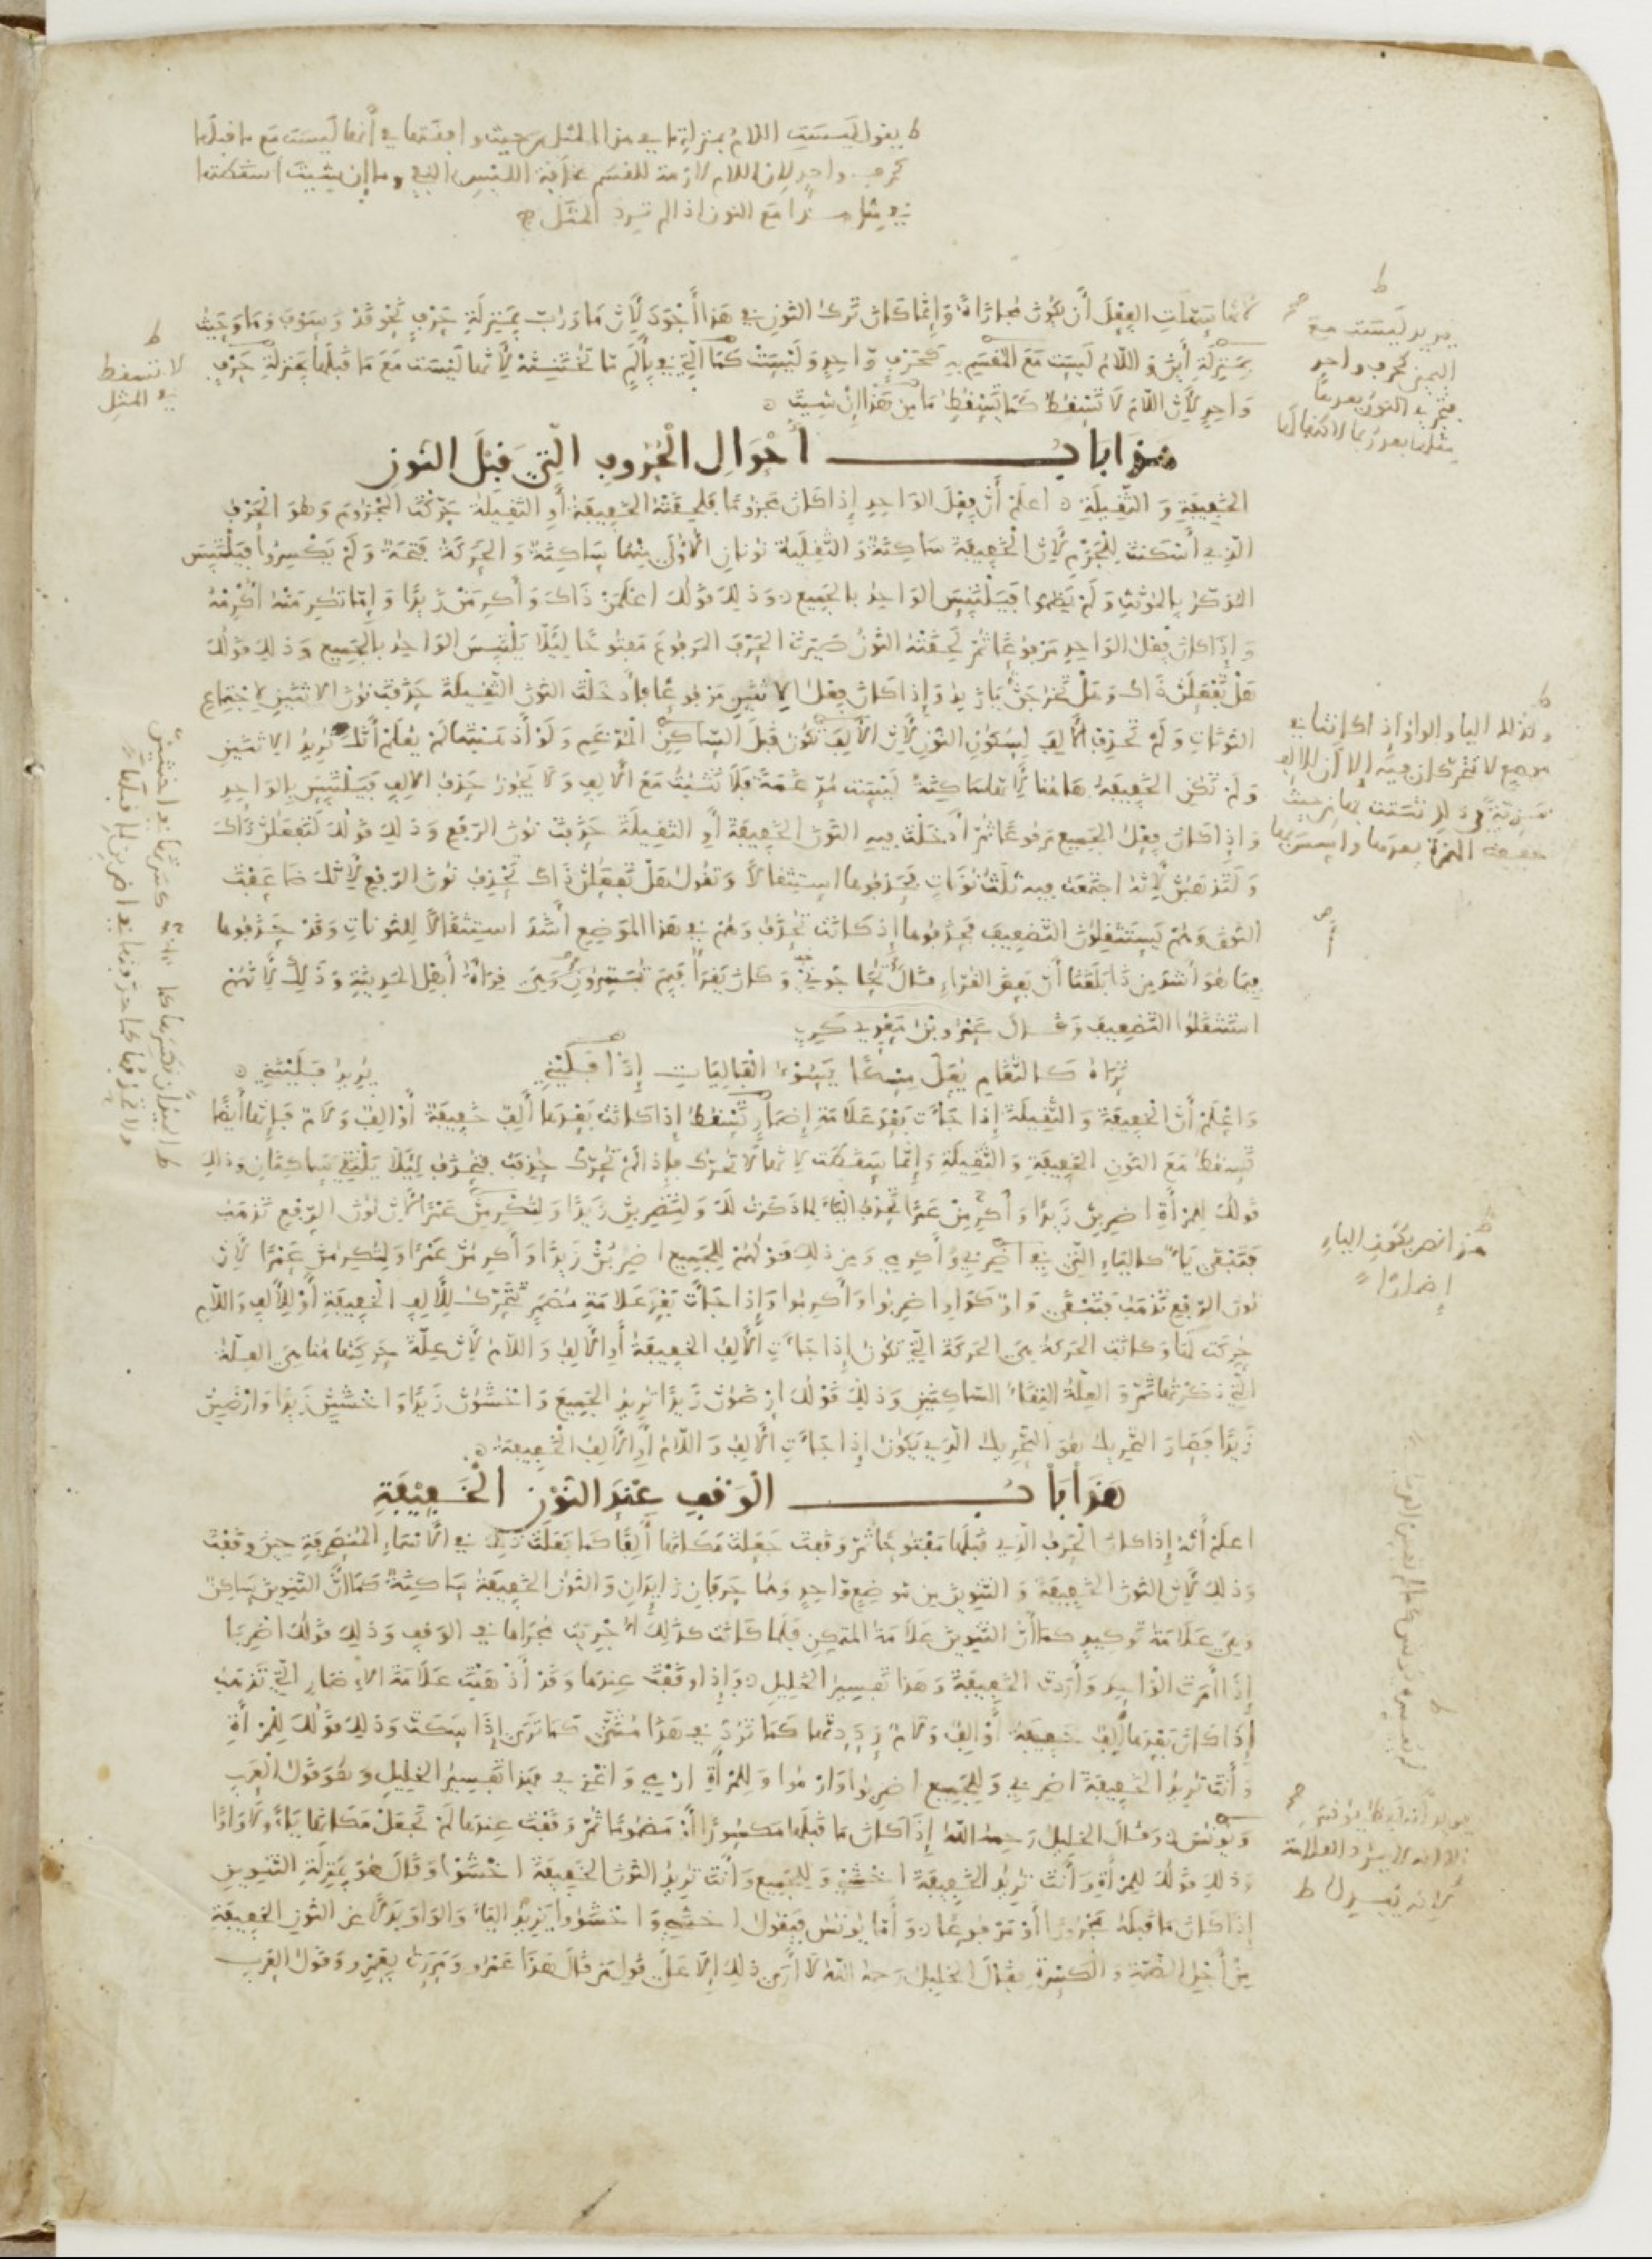 ط يقول ليست اللام بمنزلة ما في هذا المثل من حيث وافقتها في أنها ليست مع ما قبلها
كحرف واحد لأن اللام لازمة للقسم مخافة اللبس بالنفي وما إن شيت أسقطتها
في مثل هذا مع النون إذا لم ترد المثل
كما سهلت الفعل أن يكون مجازاة وإنما كان ترك النون في هذا أجود لأن ما ورب بمنزلة حرف نحو قد وسوف وما وحيث
بمنزلة أين واللام ليست مع المقسم به كحرف واحد وليست كما التي في بألم ما تختننه لأنها ليست مع ما قبلها بمنزلة حرف
واحد لأن اللام لا تسقط كما تسقط ما من هذا إن شيت
هذا باب أحوال الحروف التي قبل النون
الخفيفة والثقيلة اعلم أن فعل الواحد إذا كان مجزوما فلحقته الخفيفة أو الثقيلة حركت المجزوم وهو الحرف
الذي أسكنت للجزم لأن الخفيفة ساكنة والثقيلة نونان الأولى منهما ساكنة والحركة فتحة ولم يكسروا فيلتبس
المذكر بالمونث ولم يضموا فيلتبس الواحد بالجميع وذلك قولك اعلمن ذاك وأكرمن زيدا وإما تكرمنه أكرمه
وإذا كان فعل الواحد مرفوعا ثم لحقته النون صيرت الحرف المرفوع مفتوحا ليلا يلتبس الواحد بالجميع وذلك قولك
هل تفعلن ذاك وهل تخرجن يا زيد وإذا كان فعل الاثنين مرفوعا وأدخلت النون الثقيلة حذفت نون الاثنين لاجتماع
النونات ولم تحذف الألف لسكون النون لأن الألف تكون قبل الساكن المدغم ولو أذهبتها لم يعلم أنك تريد الاثنين
ولم تكن الخفيفة هاهنا لأنها ساكنة ليست مدغمة فلا تثبت مع الألف ولا يجوز حذف الألف فيلتبس بالواحد
وإذا كان فعل الجميع مرفوعا ثم أدخلت فيه النون الخفيفة أو الثقيلة حذفت نون الرفع وذلك قولك لتفعلن ذاك
ولتذهبن لأنه اجتمعت فيه ثلث نونات فحذفوها استثقالا وتقول هل تفعلن ذاك تحذف نون الرفع لأنك ضاعفت
النون وهم يستثقلون التضعيف فحذفوها إذ كانت تحذف وهم في هذا الموضع أشد استثقالا للنونات وقد حذفوها
فيما هو أشد من ذا بلغنا أن بعض القراء قال أتحاجوني وكان يقرأ فبم تبشرون وهي قراة أهل المدينة وذلك لأنهم
استثقلوا التضعيف وقال عمرو بن معدي كرب
تراه كالثغام يعل مسكا يسوء الفاليات إذا فليني يريد فلينني
واعلم أن الخفيفة والثقيلة إذا جاءت بعد علامة إضمار تسقط إذا كانت بعدها ألف خفيفة أو ألف ولام فإنها أيضا
تسقط مع النون الخفيفة والثقيلة وإنما سقطت لأنها لا تحرك فإذا لم تحرك حذفت فتحذف ليلا يلتقي ساكنان وذلك
قولك للمرأة اضربن زيدا وأكرمن عمرا تحذف الياء لما ذكرت لك ولتضربن زيدا ولتكرمن عمرا لأن نون الرفع تذهب
فتبقى ياء كالياء التي في اضربي وأكرمي ومن ذلك قولهم للجميع اضربن زيدا وأكرمن عمرا ولتكرمن عمرا لأن
نون الرفع تذهب فتبقى واو كواو اضربوا وأكرموا وإذا جاءت بعد علامة مضمر تتحرك للألف الخفيفة أو للألف واللام
حركت لها وكانت الحركة هي الحركة التي تكون إذا جاءت الألف الخفيفة أو الألف واللام لأن علة حركتها هاهنا هي العلة
التي ذكرتها ثم والعلة التقاء الساكنين وذلك قولك ارضون زيدا تريد الجميع واخشون زيدا واخشين زيدا وارضين
زيدا فصار التحريك هو التحريك الذي يكون إذا جاءت الألف واللام أو الألف الخفيفة
هذا باب الوقف عند النون الخفيفة
اعلم أنه إذا كان الحرف الذي قبلها مفتوحا ثم وقفت جعلت مكانها ألفا كما فعلت ذلك في الأسماء المنصرفة حين وقفت
وذلك لأن النون الخفيفة والتنوين من موضع واحد وهما حرفان زايدان والنون الخفيفة ساكنة كما أن التنوين ساكن
وهي علامة توكيد كما أن التنوين علامة المتمكن فلما كانت كذلك أجريت مجراها في الوقف وذلك قولك اضربا
إذا أمرت الواحد وأردت الخفيفة وهذا تفسير الخليل وإذا وقفت عندها وقد أذهبت علامة الإضمار التي تذهب
إذا كان بعدها ألف خفيفة أو ألف ولام رددتها كما ترد في هذا مثنى كما ترى إذا سكت وذلك قولك للمرأة
وأنت تريد الخفيفة اضربي وللجميع اضربوا وارموا وللمرأة ارمي واغزي فهذا تفسير الخليل وهو قول العرب
ويونس وقال الخليل رحمه الله إذا كان ما قبلها مكسورا أو مضموما ثم وقفت عندها لم تجعل مكانها ياء ولا واوا
وذلك قولك للمرأة وأنت تريد الخفيفة اخشي وللجميع وأنت تريد النون الخفيفة اخشوا وقال هو بمنزلة التنوين
إذا كان ما قبله مجرورا أو مرفوعا وأما يونس فيقول اخشيي واخشووا يزيد الياء والواو بدلا من النون الخفيفة
من أجل الضمة والكسرة فقال الخليل رحمه الله لا أرى ذلك إلا على قول من قال هذا عمرو ومررت بعمري وقول العرب
ط
يريد ليست مع
اليمين كحرف واحد
ط
لا تسقط
في المثل
ط
وكذلك الياء والواو إذا كانتا في
هذا نص بكون الياء
إضمارا